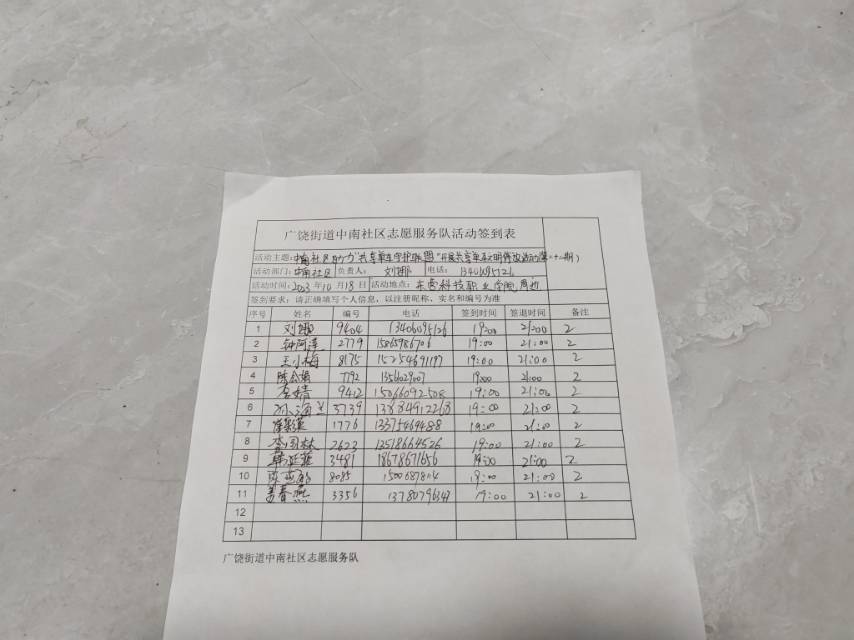 广饶街道中南社区志愿服务队活动签到表
活动主题：中南社区助力"共享单车守护联盟"开展共享单车文明停放活动(第二十二期)
活动部门：中南社区 负责人： 刘娜 电话： 13406095126
活动时间：2023年10月18日 活动地点：东营科技职业学院周边
签到要求：请正确填写个人信息，以注册昵称、实名和编号为准
序号 姓名 编号 电话 签到时间 签退时间 备注
1 刘娜 9404 13406095126 19:00 21:00 2
2 钟阿萍 2779 15865986706 19:00 21:00 2
3 王小梅 8175 15254691197 19:00 21:00 2
4 7792 19:00 21:00 2
5 李婧 9412 15066092508 19:00 21:00 2
6 刘海兰 3739 13884912268 19:00 21:00 2
7 1776 13375469488 19:00 21:00 2
8 李国林 2623 13518664526 19:00 21:00 2
9 3481 18678671656 19:00 21:00 2
10 8085 19:00 21:00 2
11 姜春燕 3356 13780796348 19:00 21:00 2
12
13
广饶街道中南社区志愿服务队